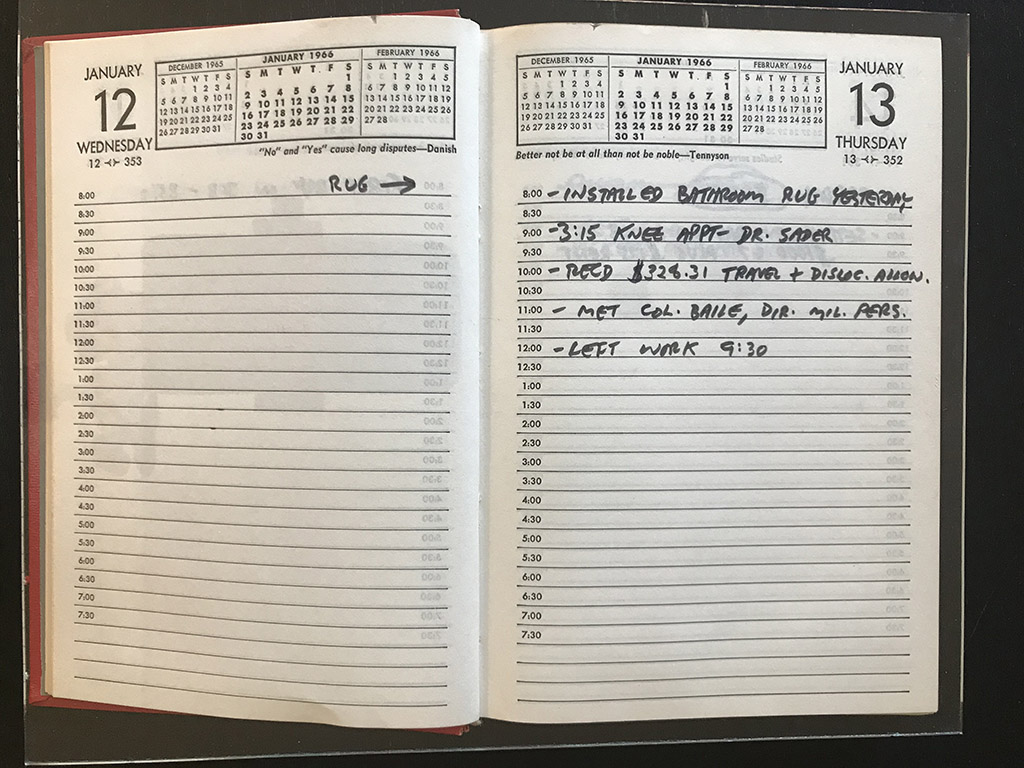 JANUARY
12
WEDNESDAY
12 -<>- 353
DECEMBER 1965
S M T W T F S
1 2 3 4
5 6 7 8 9 10 11
12 13 14 15 16 17 18
19 20 21 22 23 24 25
26 27 28 29 30 31
JANUARY 1966
S M T W T F S
1
2 3 4 5 6 7 8
9 10 11 12 13 14 15
16 17 18 19 20 21 22
23 24 25 26 27 28 29
30 31
FEBRUARY 1966
S M T W T F S
1 2 3 4 5
6 7 8 9 10 11 12
13 14 15 16 17 18 19
20 21 22 23 24 25 26
27 28
"No" and "Yes" cause long disputes—Danish
RUG →
8:00
8:30
9:00
9:30
10:00
10:30
11:00
11:30
12:00
12:30
1:00
1:30
2:00
2:30
3:00
3:30
4:00
4:30
5:00
5:30
6:00
6:30
7:00
7:30
DECEMBER 1965
S M T W T F S
1 2 3 4
5 6 7 8 9 10 11
12 13 14 15 16 17 18
19 20 21 22 23 24 25
26 27 28 29 30 31
JANUARY 1966
S M T W T F S
1
2 3 4 5 6 7 8
9 10 11 12 13 14 15
16 17 18 19 20 21 22
23 24 25 26 27 28 29
30 31
FEBRUARY 1966
S M T W T F S
1 2 3 4 5
6 7 8 9 10 11 12
13 14 15 16 17 18 19
20 21 22 23 24 25 26
27 28
JANUARY
13
THURSDAY
13 -<>- 352
Better not be at all than not be noble—Tennyson
8:00 - INSTALLED BATHROOM RUG YESTERDAY
8:30
9:00 - 3:15 KNEE APPT- DR. SADER
9:30
10:00 - RECD $328.31 TRAVEL + DISLOC. ALLOW.
10:30
11:00 - MET COL. BAILE, DIR. MIL. PERS.
11:30
12:00 - LEFT WORK 9:30
12:30
1:00
1:30
2:00
2:30
3:00
3:30
4:00
4:30
5:00
5:30
6:00
6:30
7:00
7:30